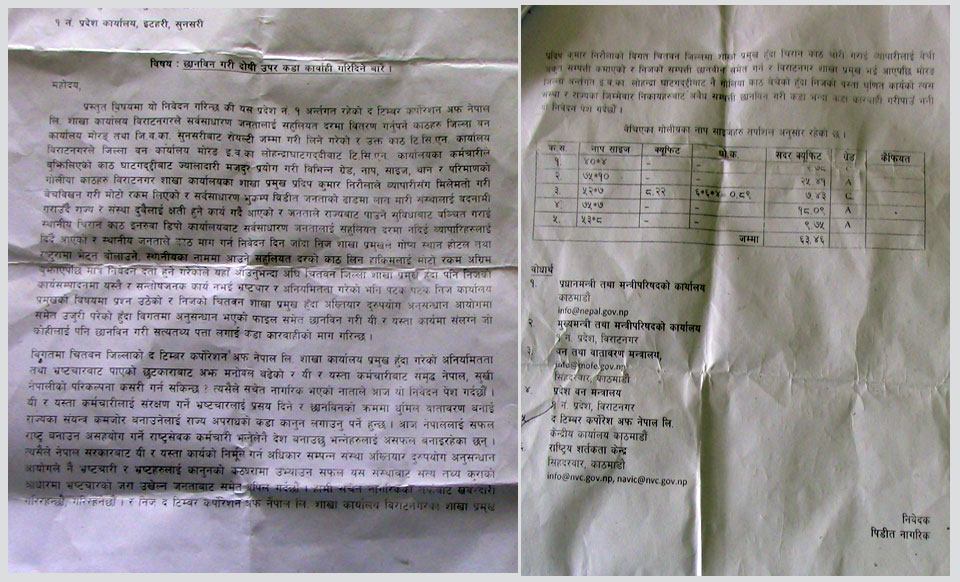 १ नं. प्रदेश कार्यालय, इटहरी, सुनसरी
विषय : छानविन गरी दोषी उपर कडा कार्वाही गरिदिने बारे ।
महोदय,
प्रस्तुत विषयमा यो निवेदन गरिन्छ की यस प्रदेश नं. १ अर्न्तगत रहेको द टिम्बर कर्पोरेशन अफ नेपाल
लि. शाखा कार्यालय विराटनगरले सर्वसाधारण जनतालाई सहुलियत दरमा बितरण गर्नुपर्ने काठहरु जिल्ला वन
कार्यालय मोरङ तथा जि.व.का. सुनसरीबाट रोयल्टी जम्मा गरी लिने गरेको र उक्त काठ टि.सि.एन. कार्यालय
विराटनगरले जिल्ला वन कार्यालय मोरङ इ.व.का लोहन्द्राघाटगद्दीबाट टि.सि.एन. कार्यालयका कर्मचारीले
बुझिलिएको काठ घाटगद्दीबाट ज्यालादारी मजदुर प्रयोग गरी विभिन्न ग्रेड, नाप, साइज, थान र परिमाणको
गोलीया काठहरु विराटनगर शाखा कार्यालयका शाखा प्रमुख प्रदिप कुमार निरौलाले व्यापारीसंग मिलेमतो गरी
बेचबिखन गरी मोटो रकम लिएको र सर्वसाधारण भुकम्प पिडीत जनताको ढाडमा लात मारी संस्थालाई बदनामी
गराउँदै राज्य र संस्था दुबैलाई क्षती हुने कार्य गर्दै आएको र जनताले राज्यबाट पाउने सुविधाबाट वञ्चित गराई
स्थानीय चिरान काठ इनरुवा डिपो कार्यालयबाट सर्वसाधारण जनतालाई सहुलियत दरमा नदिई व्यापारिहरुलाई
दिँदै आएको र स्थानीय जनताले काठ माग गर्न निवेदन दिन जाँदा निज शाखा प्रमुखले गोप्य स्थान होटल तथा
भेट्न बोलाउने, स्थानीयका नाममा आउने सहुलियत दरको काठ लिन हाकिमलाई मोटो रकम अग्रिम
बुझाएपछि मात्र निवेदन दर्ता हुने गरेकोले यहाँ आउनुभन्दा अघि चितवन जिल्ला शाखा प्रमुख हुँदा पनि निजको
कार्यसम्पादनमा यस्तै र सन्तोषजनक कार्य नभई भ्रष्टचार र अनियमितता गरेको भनि पटक पटक निज कार्यालय
प्रमुखको विषयमा प्रश्न उठेको र निजको चितवन शाखा प्रमुख हुँदा अख्तियार दुरुपयोग अनुसन्धान आयोगमा
समेत उजुरी परेको हुँदा बिगतमा अनुसन्धान भएको फाइल समेत छानविन गरी यी र यस्ता कार्यमा संलग्न जो
कोहीलाई पनि छानविन गरी सत्यतथ्य पत्ता लगाई कडा कारवाहीको माग गरिन्छ ।
बिगतमा चितवन जिल्लाको द टिम्बर कर्पोरेशन अफ नेपाल लि. शाखा कार्यालय प्रमुख हुँदा गरेको अनियमितता
तथा भ्रष्टचारबाट पाएको छुटकाराबाट अझ मनोवल बढेको र यी र यस्ता कर्मचारीबाट समृद्ध नेपाल, सुखी
नेपालीको परिकल्पना कसरी गर्न सकिन्छ ? त्यसैले सचेत नागरिक भएको नाताले आज यो निवेदन पेश गर्दछौं ।
यी र यस्ता कर्मचारीलाई संरक्षण गर्ने भ्रष्टचारलाई प्रसय दिने र छानविनको क्रममा धुमिल वातावरण बनाई
राज्यका संयन्त्र कमजोर बनाउनेलाई राज्य अपराधको कडा कानुन लगाउनु पर्ने हुन्छ । आज नेपाललाई सफल
राष्ट्र बनाउन असहयोग गर्ने राष्ट्रसेवक कर्मचारी भन्नेलेनै देश बनाउछु भन्नेहरुलाई असफल बनाइरहेका छन् ।
त्यसैले नेपाल सरकारबाट यी र यस्ता कार्यको निर्मूल गर्न अधिकार सम्पन्न संस्था अख्तियार दुरुपयोग अनुसन्धान
आयोगले नै भ्रष्टचारी र भ्रष्टहरुलाई कानुनको कठघरामा उभ्याउन सफल यस संस्थाबाट सत्य तथ्य कुराको
आधारमा भ्रष्टचारको जरा उखेल्न जनताबाट समेत अपिल गर्दछौं । हामी सचेत नागरिकको तर्फबाट खबरदारी
गरिरहन्छौं, गरिरहनेछौं । र निज द टिम्बर कर्पोरेशन अफ नेपाल लि. शाखा कार्यालय विराटनगरका शाखा प्रमुख
प्रदिप कुमार निरौलाको विगत चितवन जिल्लामा शाखा प्रमुख हुँदा चिरान काठ चोरी गराई व्यापारीलाई बेची
सम्पत्ती कमाएको र निजको सम्पत्ती छानवीन समेत गर्न र विराटनगर शाखा प्रमुख भई आएपछि मोरङ
जिल्ला अर्न्तगत इ.व.का लोहन्द्रा घाटगद्दीबाट नै गोलिया काठ बेचेको हुँदा निजको यस्ता घृणित कार्यको यस
संस्था र राज्यका जिम्मेवार निकायहरुबाट अबैध सम्पत्ती छानविन गरी कडा भन्दा कडा कारवाही गरीपाउँ भनी
यो निवेदन पेश गर्दछौं ।
बेचिएका गोलीयाका नाप साइजहरु तपशिल अनुसार रहेको छ ।
क.स. नाप साइज क्यूफिट घो.क. सदर क्यूफिट ग्रेड कैफियत
१. ४०*४ - -
२. ७५*१० - - २५.४१ A
३. ५२*७ ८.२२ ६*६*४ ०.८९ ७.४३ C
४. ७५*७ - - १८.०९ A -
५. ५३*८ - - ९.७५ A
जम्मा ६३.४६
बोधार्थ
१. प्रधानमन्त्री तथा मन्त्रीपरिषदको कार्यालय
काठमाडौं
info@nepal.gov.np
२. मुख्यमन्त्री तथा मन्त्रीपरिषदको कार्यालय
१ नं. प्रदेश, विराटनगर
३. वन तथा वातावरण मन्त्रालय,
info@mofe.gov.np
सिंहदरवार, काठमाडौं
४. प्रदेश वन मन्त्रालय
१ नं. प्रदेश, विराटनगर
५. द टिम्बर कर्पोरेश अफ नेपाल लि.
केन्द्रीय कार्यालय काठमाडौं
राष्ट्रिय शर्तकता केन्द्र
सिंहदरवार, काठमाडौं
info@nvc.gov.np, navic@nvc.gov.np
निवेदक
पिडीत नागरिक